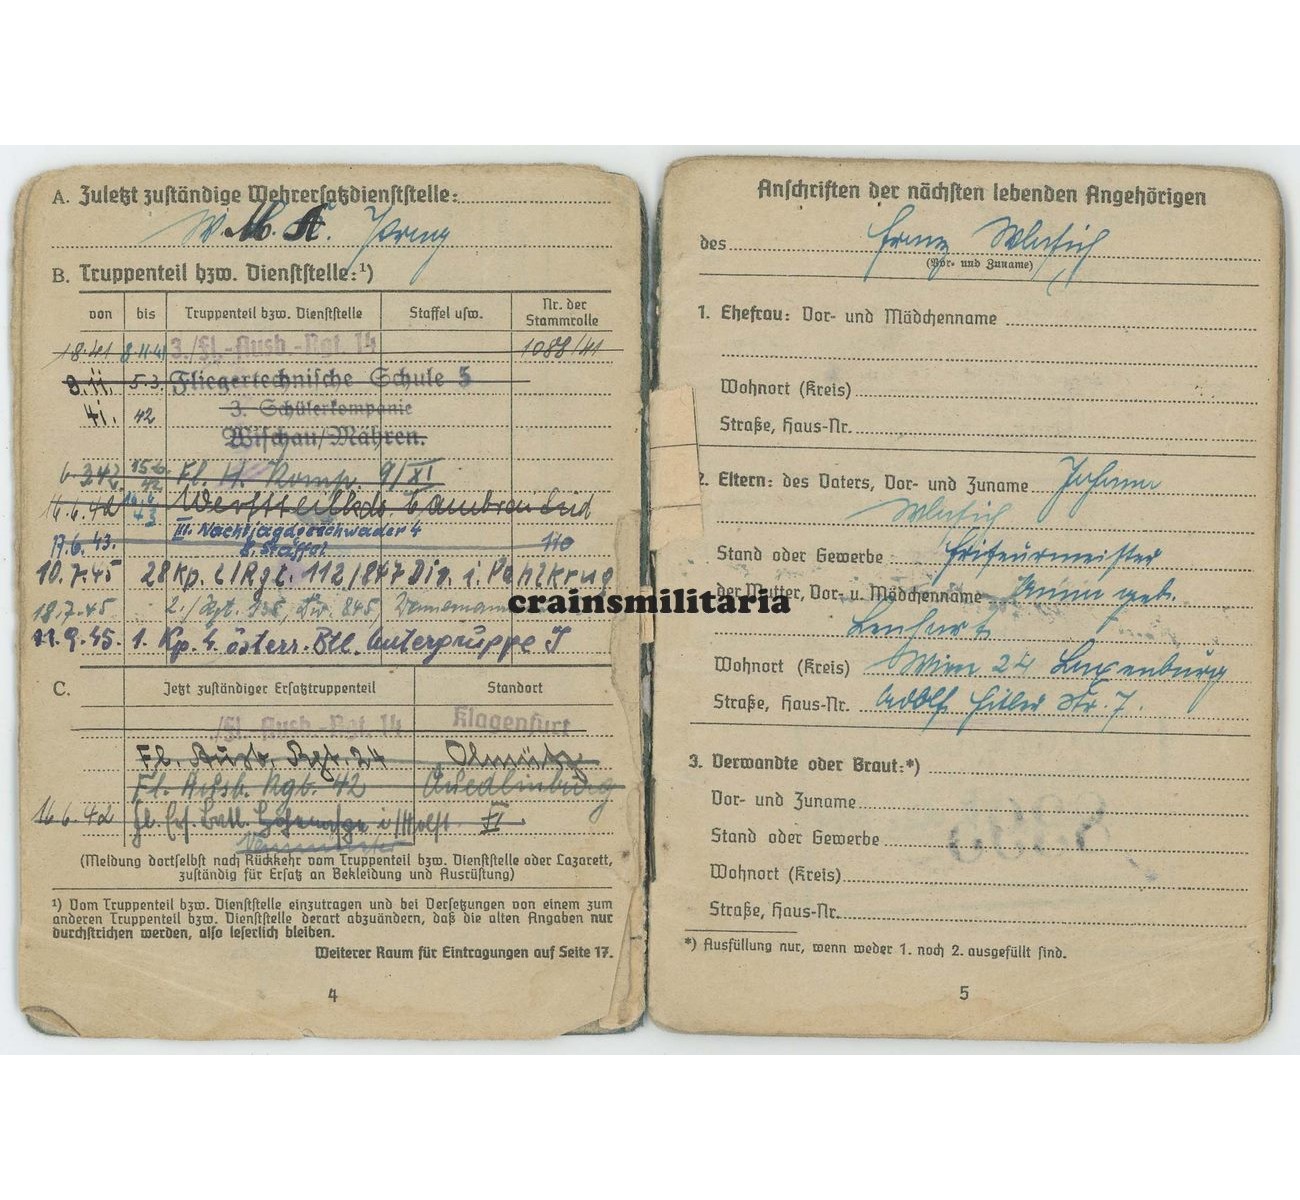 A. Zuletzt zuständige Wehrersatzdienststelle:
W.M.A.
B. Truppenteil bzw. Dienststelle:¹)
von bis Truppenteil bzw. Dienststelle Staffel usw. Nr. der Stammrolle
1.8.41 8.11.41 3./Fl.-Ausb.-Rgt. 14 1088/41
8.11. 5.3. Fliegertechnische Schule 5
41. 42 3. Schülerkompanie
Wischau/Mähren.
6.3.42 15.6. 42 Fl. H. Komp. 9/XI
16.6.42 43 Werftteilkdo. Cambrai Süd
17.6.43. III. Nachtjagdgeschwader 4
8. Staffel 110
10.7.45 28 Kp. L/Rgt. 112/847 Div. i. Pahlkrug
18.7.45 2./Rgt. 135, Div. 845,
11.9.45. 1. Kp. 4. österr. Btl. Untergruppe J
C. Jetzt zuständiger Ersatztruppenteil Standort
./Fl. Ausb.-Rgt. 14 Klagenfurt
Fl. Ausb. Rgt. 24 Olmütz
Fl. Ausb. Rgt. 42 Quedlinburg
16.6.42 i/Holst. XI
(Meldung dortselbst nach Rückkehr vom Truppenteil bzw. Dienststelle oder Lazarett,
zuständig für Ersatz an Bekleidung und Ausrüstung)
¹) Vom Truppenteil bzw. Dienststelle einzutragen und bei Versetzungen von einem zum
anderen Truppenteil bzw. Dienststelle derart abzuändern, daß die alten Angaben nur
durchstrichen werden, also leserlich bleiben.
Weiterer Raum für Eintragungen auf Seite 17.
4
Anschriften der nächsten lebenden Angehörigen
des Franz
(Vor- und Zuname)
1. Ehefrau: Vor- und Mädchenname
Wohnort (Kreis)
Straße, Haus-Nr.
2. Eltern: des Vaters, Vor- und Zuname Johann
Stand oder Gewerbe Friseurmeister
der Mutter, Vor- u. Mädchenname geb.
Wohnort (Kreis) Wien 24 Laxenburg
Straße, Haus-Nr. Adolf Hitler Str. 7.
3. Verwandte oder Braut:*)
Vor- und Zuname
Stand oder Gewerbe
Wohnort (Kreis)
Straße, Haus-Nr.
*) Ausfüllung nur, wenn weder 1. noch 2. ausgefüllt sind.
5
crainsmilitaria